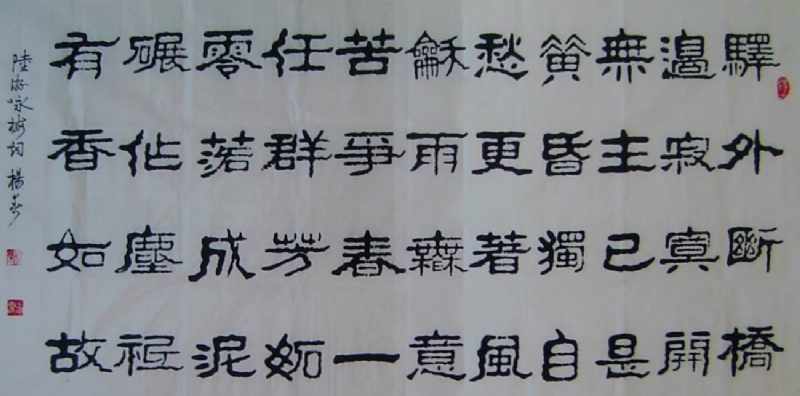 驛外斷橋
邊寂寞開
無主已是
黃昏獨自
愁更著風
龢雨無意
苦爭春一
任群芳妬
零落成泥
碾作塵祗
有香如故
陸游咏梅詞 楊